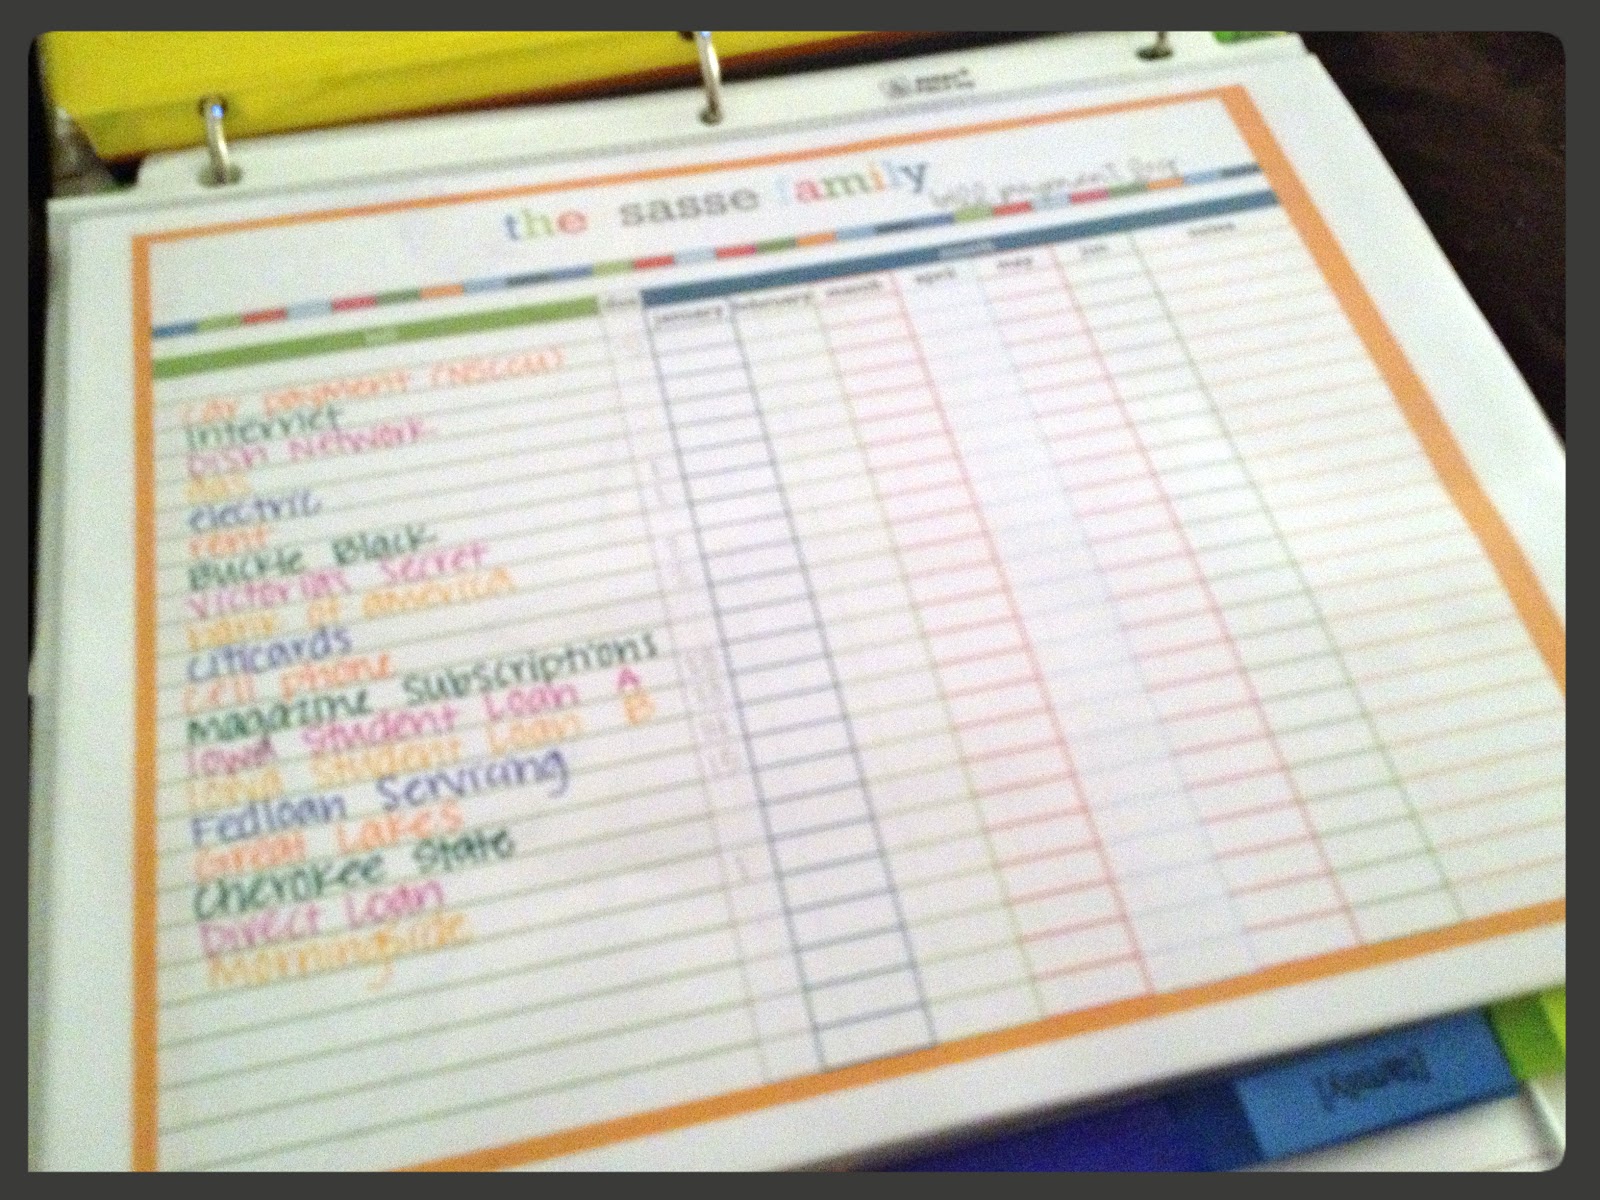 the sasse family
bill payment log
month
january february march april may jun notes
car payment
internet
Dish Network
gas
electric
rent
Buckle Black
Victorias Secret
bank of america
Citicards
cell phone
Magazine Subscriptions
Iowa Student Loan A
Iowa Student Loan B
Fedloan Servicing
Great Lakes
Cherokee State
Direct Loan
Morningside